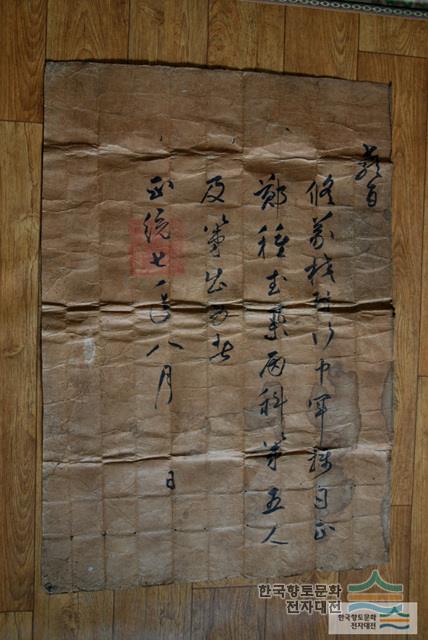 教旨
修義校尉行中軍攝司正
鄭種武丙科第五人
及第出身者
正統七年八月 日
한국향토문화
전자대전
한국향토문화
전자대전